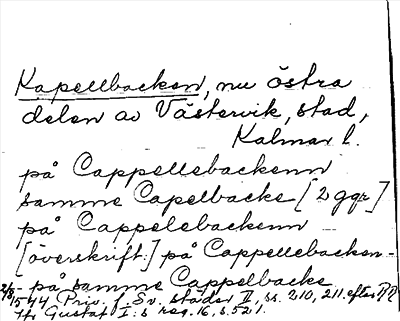 Kapellbacken, nu östra
delen av Västervik, stad,
Kalmar l.
på Cappellebackenn
samme Capelbacke [2 ggr]
på Cappelebackenn
[överskrift:] på Cappellebacken -
- på samme Cappelbacke
2/8 1544 Priv. f. Sv. städer II, ss. 210, 211. efter RR
Jfr Gustaf I:s reg. 16, s. 521.